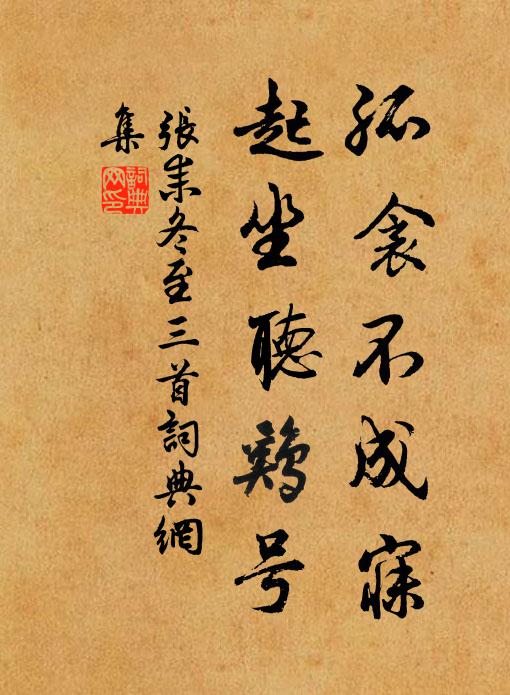 孤衾不成寐
起坐聽鷄号
張耒冬至三首詞典網
集
詞典
网印